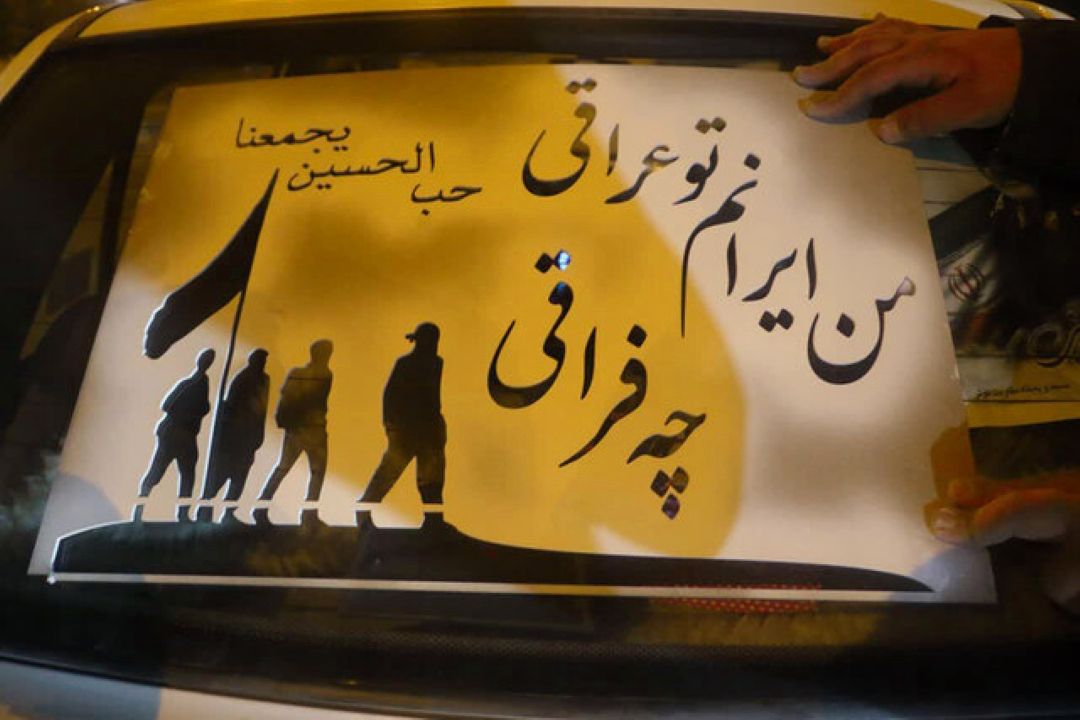 من ایرانم تو عراقی
چه فراقی
حب الحسین
یجمعنا